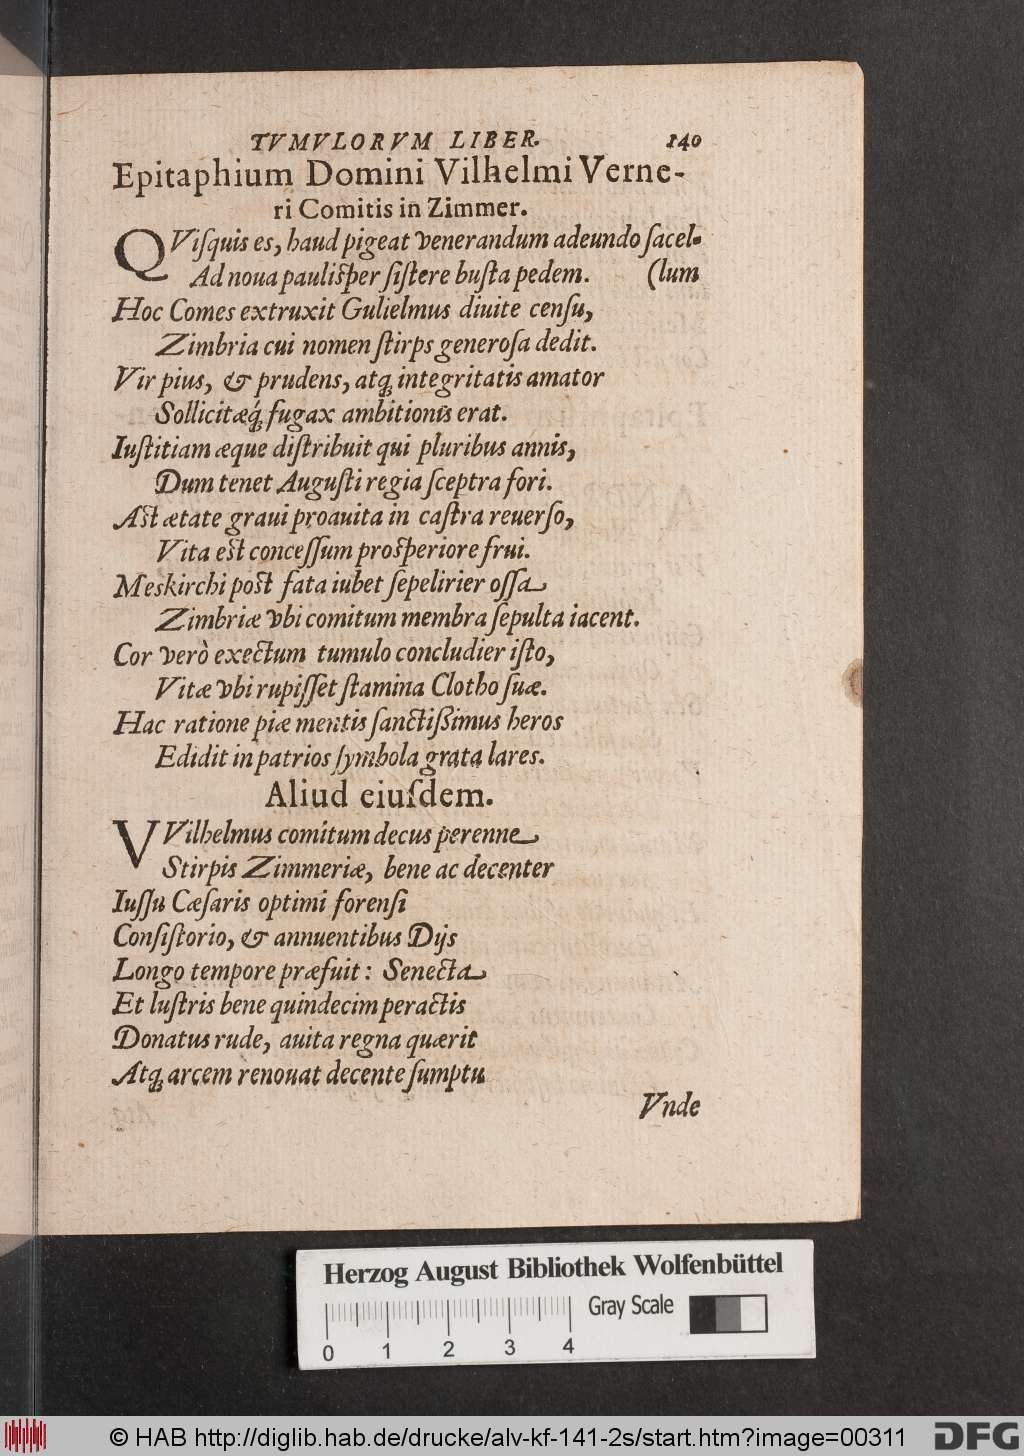 TVMVLORVM LIBER. 140
Epitaphium Domini Vilhelmi Verne-
ri Comitis in Zimmer.
QViſquis es, haud pigeat venerandum adeundo ſacel-
Ad noua pauliſper ſiſtere buſta pedem. (lum
Hoc Comes extruxit Gulielmus diuite cenſu,
Zimbria cui nomen ſtirps generoſa dedit.
Vir pius, & prudens, atq; integritatis amator
Sollicitæq́; fugax ambitionis erat.
Iuſtitiam æque diſtribuit qui pluribus annis,
Dum tenet Auguſti regia ſceptra fori.
Aſt ætate graui proauita in caſtra reuerſo,
Vita eſt conceſſum proſperiore frui.
Meskirchi poſt fata iubet ſepelirier oſſa
Zimbriæ vbi comitum membra ſepulta iacent.
Cor verò exectum tumulo concludier iſto,
Vitæ vbi rupiſſet ſtamina Clotho ſuæ.
Hac ratione piæ mentis ſanctißimus heros
Edidit in patrios ſymbola grata lares.
Aliud eiuſdem.
VVilhelmus comitum decus perenne
Stirpis Zimmeriæ, bene ac decenter
Iuſſu Cæſaris optimi forenſi
Conſiſtorio, & annuentibus Dijs
Longo tempore præfuit: Senecta
Et luſtris bene quindecim peractis
Donatus rude, auita regna quærit
Atq; arcem renouat decente ſumptu
Vnde
Herzog August Bibliothek Wolfenbüttel
Gray Scale
0 1 2 3 4
© HAB http://diglib.hab.de/drucke/alv-kf-141-2s/start.htm?image=00311
DFG